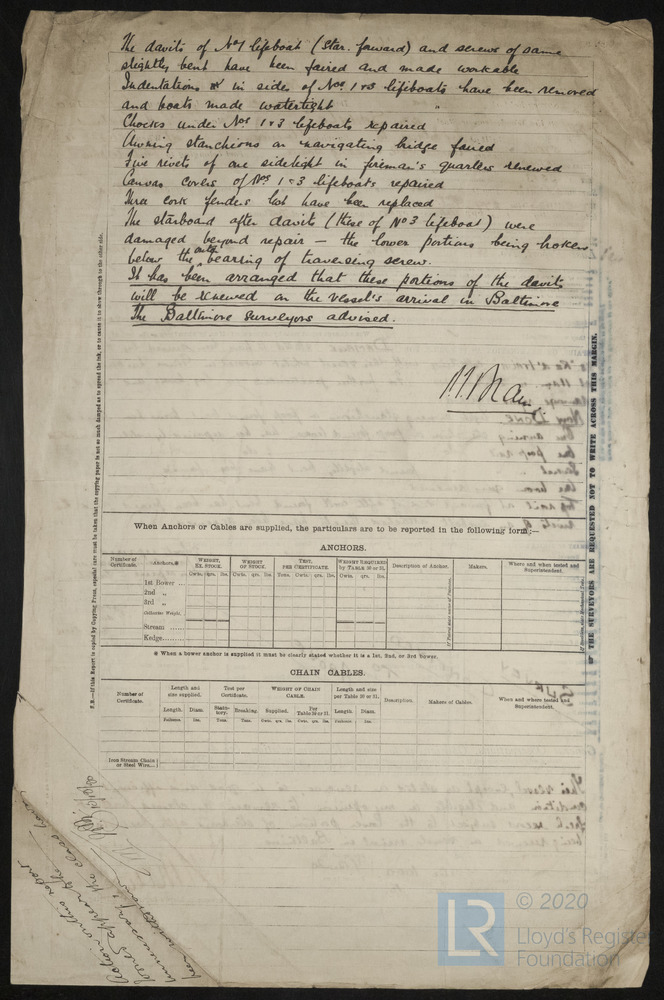 The davits of No 1 lifeboat (Star. forward) and screws of same
slightly bent have been faired and made workable
Indentations in sides of Nos 1 & 3 lifeboats have been removed
and boats made watertight "
Chocks under Nos 1 & 3 lifeboats repaired
Awning stanchions on navigating bridge faired
Five rivets of one sidelight in fireman's quarters renewed
Canvas covers of Nos 1 & 3 lifeboats repaired
Three cork fenders lost have been replaced
The starboard after davits (those of No 3 lifeboat) were
damaged beyond repair — the lower portions being broken
below the outer bearing of traversing screw.
It has been arranged that these portions of the davits
will be renewed on the vessel's arrival in Baltimore
The Baltimore Surveyors advised.
When Anchors or Cables are supplied, the particulars are to be reported in the following form:—
ANCHORS.
Number of Certificate.
Anchors.*
WEIGHT, EX. STOCK.
WEIGHT OF STOCK.
TEST, PER CERTIFICATE.
WEIGHT REQUIRED by TABLE 30 or 31.
Description of Anchor.
Makers.
Where and when tested and Superintendent.
Cwts. qrs. lbs. Cwts. qrs. lbs. Tons. Cwts. qrs. lbs. Cwts. qrs. lbs.
1st Bower ...
2nd "
3rd "
Collective Weight.
Stream ......
Kedge.......
* When a bower anchor is supplied it must be clearly stated whether it is a 1st, 2nd, or 3rd bower.
CHAIN CABLES.
Number of Certificate.
Length and size supplied.
Test per Certificate.
WEIGHT OF CHAIN CABLE.
Length and size per Table 30 or 31.
Description.
Makers of Cables.
When and where tested and Superintendent.
Length. Diam. Statutory. Breaking. Supplied. Per Table 30 or 31. Length. Diam.
Fathoms. Ins. Tons. Tons. Cwts. qrs. lbs. Cwts. qrs. lbs. Fathoms. Ins.
Iron Stream Chain
or Steel Wire...
THE SURVEYORS ARE REQUESTED NOT TO WRITE ACROSS THIS MARGIN.
P.S.—If this Report is copied by Copying Press, especial care must be taken that the copying paper is not so much damped as to spread the ink, or to cause it to show through to the other side.
© 2020
LR
Lloyd's Register
Foundation